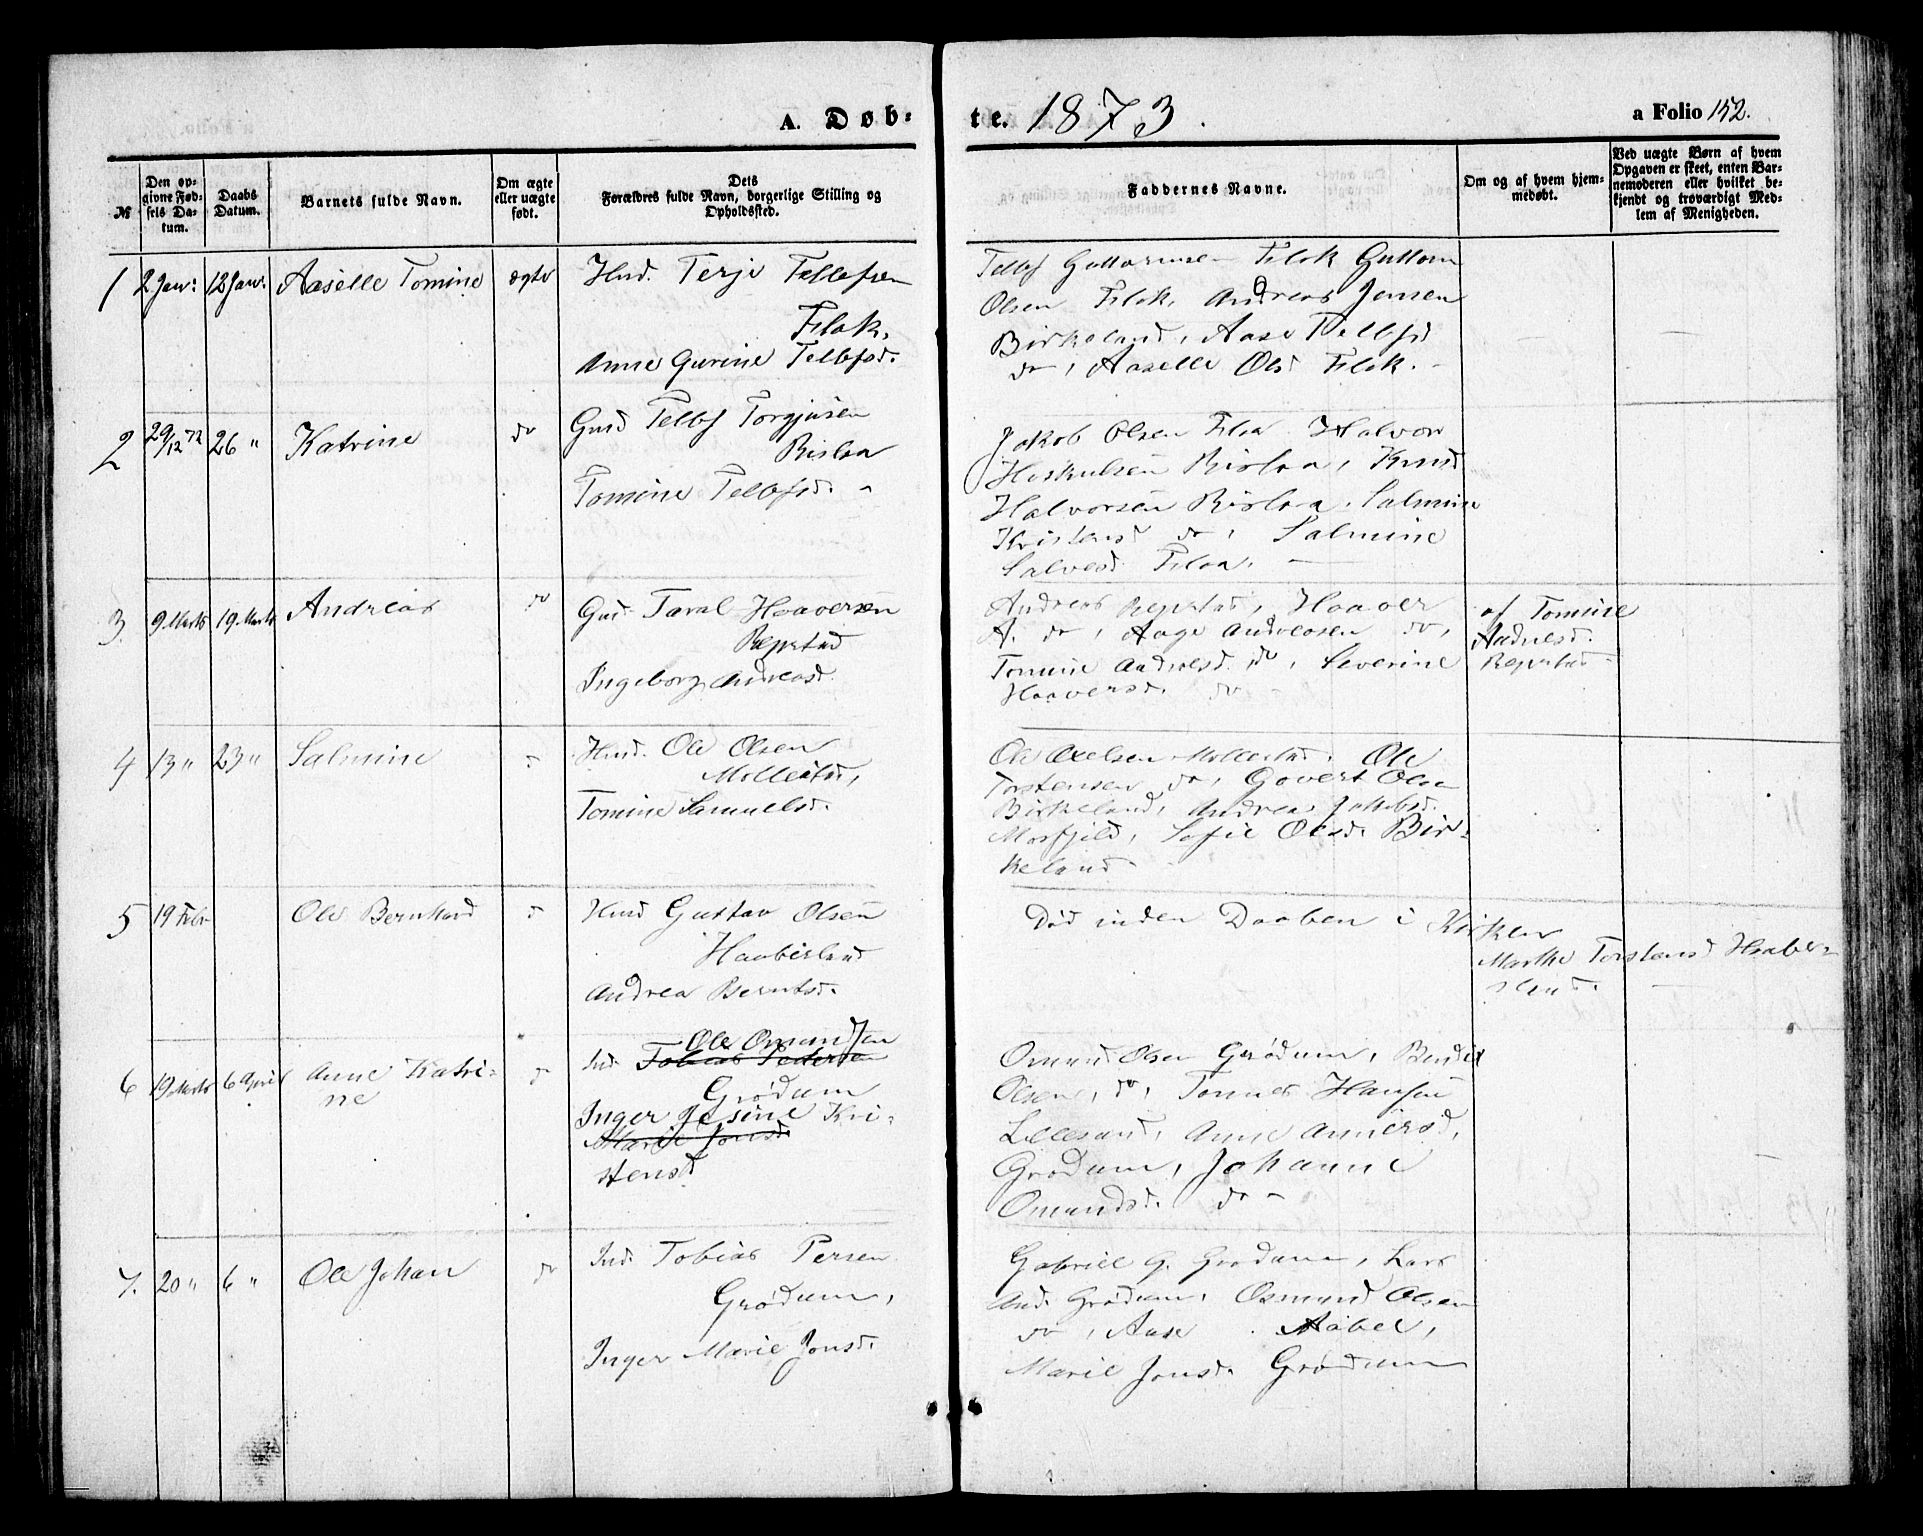 A. Døb-
te. 1873.
a Folio 152.
№
Den op-
givne Fød-
sels Da-
tum.
Daabs
Datum.
Barnets fulde Navn.
Om ægte
eller uægte
født.
Dets
Forældres fulde Navn, borgerlige Stilling og
Opholdssted.
Faddernes Navne.
Om og af hvem hjem-
medøbt.
Ved uægte Børn af hvem
Opgaven er skeet, enten Bar-
nemoderen eller hvilket be-
kjendt og troværdigt Med-
lem af Menigheden.
1 2 Janr: 12 Janr: Aaselle Tomine ægte
Husd. Terje Tellefsen
Flak,
Anne Gurine Tellefsd.
Tellef Guttormsen Flak Guttorm
Olsen Flak, Andreas Jensen
Birkeland, Aase Tellefsd
do, Aaselle Olsd Flak.
2 29/12 72 26 " Katrine do
Gmd Tellef Torgjusen
Risloa
Tomine Tellefsd. "
Jakob Olsen Flaa Halvor
Risloa, Knud
Halvorsen Risloa, Salmine
Kristensd do, Salmine
Salvesd Flaa.
3. 9 Marts 19 Marts Andreas do
Gmd Taral Haaversen
Repstad
Ingeborg Andreasd.
Andreas Repstad, Haaver
A. do, Aage Andreasen do,
Tomine Andreasd. do, Severine
Haaversd. do
af Tomine
Andresd.
Repstad
4 13 " 23 " Salmine
Husd. Ole Olsen
Mollestad,
Tomine Samuelsd.
Ole Axelsen Mollestad. Ole
Torstensen do, Govert Olsen
Birkeland, Andrea Jakobsd.
Mosfjeld, Sofie Olsd. Bir-
keland
5 19 Febr Ole Bernhard d
Husd Gustav Olsen
Haabesland
Andrea Berntsd.
Død inden Daaben i Kirken
Marthe Torstensd Haabes-
land.
6 19 Marts 6 April Anne Katri-
ne
d
Ole Omundsen
Ind Tobias Pedersen
Grødum
Inger Jesine Kri-
Marie Jonsd
stensd
Omund Olsen Grødum, Bendix
Olsen, do, Tønnes Hansen
Lillesand, Anne Annersd,
Grødum, Johanne
Omundsd. do
7. 20 " 6 " Ole Johan do
Ind Tobias Persen
Grødum,
Inger Marie Jonsd.
Gabriel G. Grødum, Lars
And. Grødum, Osmund Olsen
do, Aase Aabel,
Marie Jonsd. Grødum